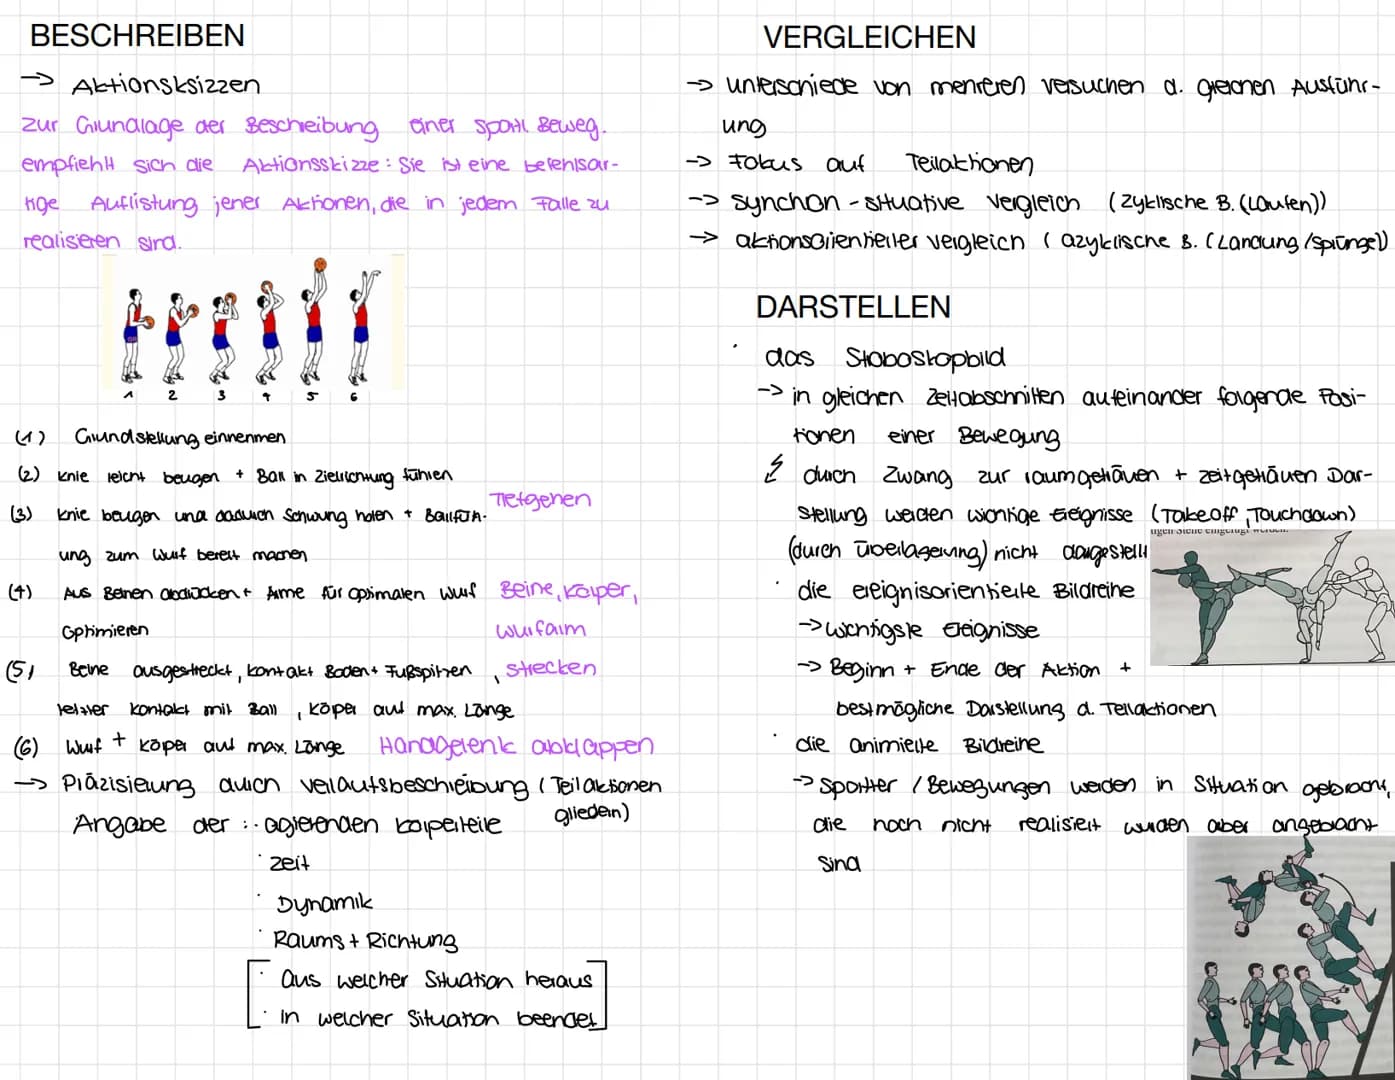 BESCHREIBEN
→ Aktionsksizzen
zur Grundlage der Beschreibung einer sportl. Beweg.
empfiehlt sich die Aktionsskizze: Sie ist eine befehlsar-
tige Auflistung jener Aktionen, die in jedem Falle zu
realisieren sind.
1 2 3 4 5 6
(1) Grundstellung einnehmen
(2) Knie leicht beugen + Ball in Zielrichtung führen
(3) Knie beugen und dadurch Schwung holen + Ballfüh-
ung zum Wurf bereit machen
Tiefgehen
(4) Aus Beinen abdrücken + Arme für optimalen Wurf
optimieren
Beine, Körper,
Wurfarm
(5) Beine ausgestreckt, kontakt Boden + Fußspitzen,
letzter Kontakt mit Ball, Köper auf max. Länge
strecken
(6) Wurf + Köper auf max. Länge Handgelenk abklappen
→ Präzisierung durch Verlaufsbeschreibung (Teilaktionen
gliedern)
Angabe der : · agierenden Körperteile
· Zeit
· Dynamik
· Raums + Richtung
· Aus welcher Situation heraus
· In welcher Situation beendet
VERGLEICHEN
→ unterschiede von mehreren versuchen d. gleichen Ausführ-
ung
→ Fokus auf Teilaktionen
→ synchon - situative Vergleich (zyklische B. (Laufen))
→ aktionsorientierter vergleich (azyklische B. (Landung/Sprünge))
DARSTELLEN
· das Stobostopbild
→ in gleichen Zeitabschnitten aufeinander folgende Posi-
tionen einer Bewegung
durch Zwang zur raumgeträuen + zeitgeträuen Dar-
stellung werden wichtige Ereignisse (Takeoff, Touchdown)
(durch Überlagerung) nicht dargestellt
· die ereignisorientierte Bildreihe
→ wichtigste Ereignisse
→ Beginn + Ende der Aktion +
bestmögliche Darstellung d. Teilaktionen
· die animierte Bildreihe
→ Sportler / Bewegungen werden in Situation gebracht,
die noch nicht realisiert wurden aber angebracht
sind